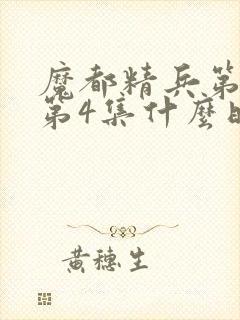 魔都精兵第
第4集什麼
黃穗生